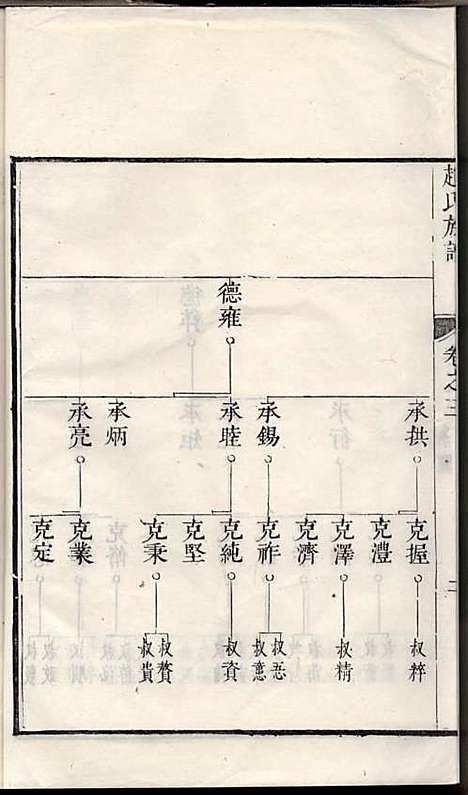 趙氏族譜
卷之三
二
德雍
承拱 承錫 承睦 承炳 承亮
克握 克澧 克澤 克濟 克祚 克純 克堅 克秉 克業 克定
叔粹 叔精 叔忢 叔薏 叔資 叔贅 叔貴